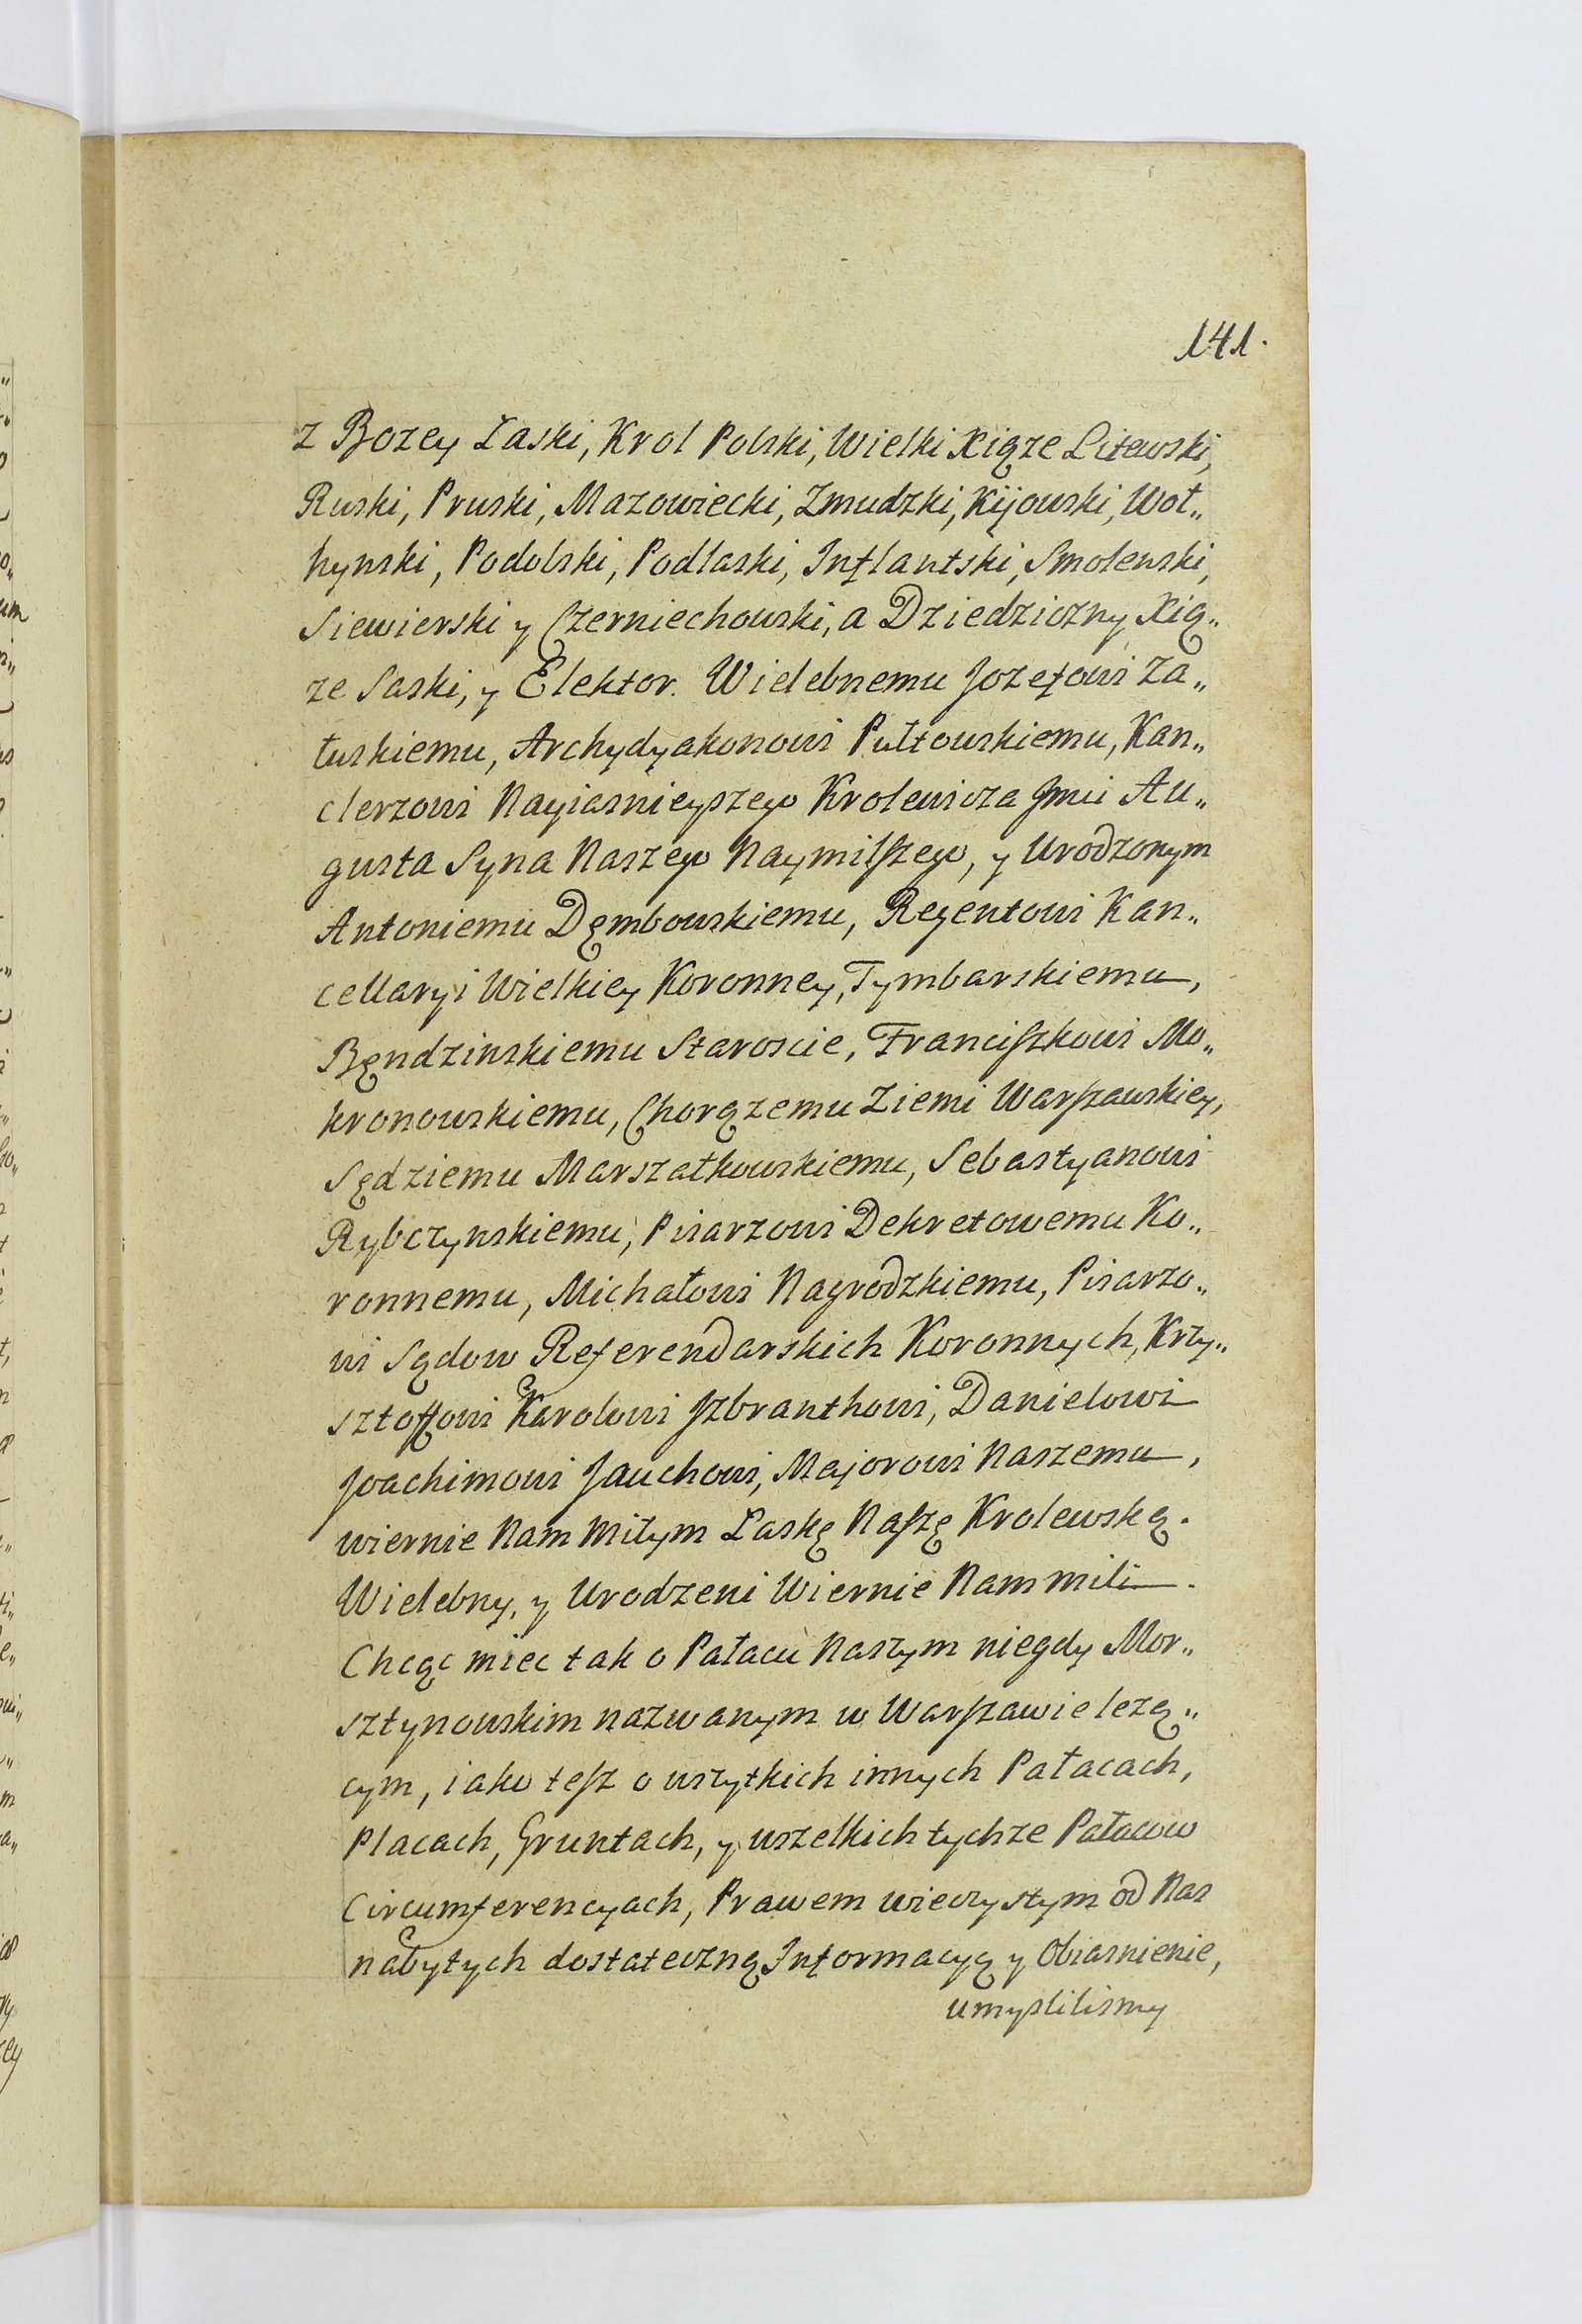 141.
z Bozey Łaski, Krol Polski, Wielki Xiąze Litewski,
Ruski, Pruski, Mazowiecki, Zmudzki, Kijowski, Woł„
hynski, Podolski, Podlaski, Inflantski, Smolenski,
Siewierski y Czerniechowski, a Dziedziczny Xią„
ze Saski, y Elektor. Wielebnemu Jozefowi Za„
łuskiemu, Archydyakonowi Pułtowskiemu, Kan„
clerzowi Nayiasnieyszego Krolewicza Jmci Au„
gusta Syna Naszego Naymilszego, y Urodzonym
Antoniemu Dęmbowskiemu, Regentowi Kan„
cellaryi Wielkiey Koronney, Tymbarskiemu,
Bęndzinskiemu Staroscie, Franciszkowi Mo„
kronowskiemu, Chorązemu Ziemi Warszawskiey,
Sędziemu Marszałkowskiemu, Sebastyanowi
Rybczynskiemu, Pisarzowi Dekretowemu Ko„
ronnemu, Michałowi Nagrodzkiemu, Pisarzo„
wi Sądow Referendarskich Koronnych, Krzy„
sztoffowi Karolowi Jzbranthowi, Danielowi
Joachimowi Jauchowi, Majorowi Naszemu,
wiernie Nam Miłym Łaskę Naszę Krolewską.
Wielebny, y Urodzeni Wiernie Nam mili.
Chcąc miec tak o Pałacu Naszym niegdy Mor„
sztynowskim nazwanym w Warszawie lezą„
cym, iako tesz o wszytkich innych Pałacach,
Placach, Gruntach, y wszelkich tychze Pałacow
Circumferencyach, Prawem wieczystym od Nas
nabytych dostateczną Informacyą y Obiasnienie,
umyslilismy